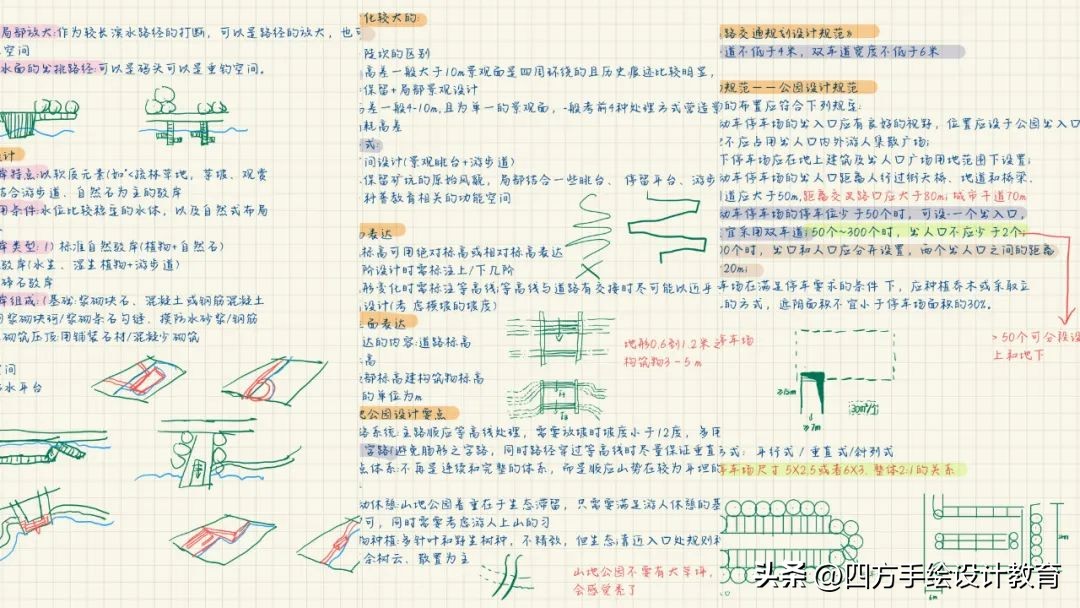 局部放大:作为较长滨水路径的打断,可以是路径的放大,也可
空间
水面的出挑路径:可以是码头可以是垂钓空间。
计
岸特点:以软质元素(如<疏林草地,草坡、观赏
结合游步道、自然石为主的驳岸
用条件:水位比较稳定的水体,以及自然式布局
岸类型:1)标准自然驳岸(植物+自然石)
驳岸(水生、湿生植物+游步道)
碎石驳岸
岸组成:(基础:浆砌块石、混凝土或钢筋混凝土
浆砌块砖/浆砌条石勾缝、模防水砂浆/钢筋
砌筑压顶:用铺装石材/混凝少砌筑
空间
水平台
化较大的:
陡坎的区别
高差一般大于10m景观面是四周环绕的且历史痕迹比较明显,
保留+局部景观设计
差一般4-10m,且为单一的景观面,一般考前4种处理方式营造景
消耗高差
式:
间设计(景观眺台+游步道)
保留矿坑的原始风貌,局部结合一些眺台、停留平台、游步
科普教育相关的功能空间
表达
标高可用绝对标高或相对标高表达
阶设计时需标注上/下几阶
形变化时需标注等高线;等高线与道路有交接时尽可能以近乎
设计(考虑横坡的坡度)
面表达
达的内容:道路标高
高
部标高建构筑物标高
的单位为m
地形0.6到1.2米
构筑物3-5m
公园设计要点
路系统:主路顺应等高线处理,需要放坡时坡度小于12度,多用
字路(避免肠形之字路,同时路径穿过等高线时尽量保证垂直
点体系:不再是连续和完整的体系,而是顺应山势在较为平坦的
动休憩:山地公园着重在于生态滞留,只需要满足游人休憩的基
可,同时需要考虑游人上山的习
物种植:多针叶和野生树种,不精致,但生态;靠近入口处规则种
余树云、散置为主
山地公园不要有大草坪,
会感觉秃了
路交通规划设计规范》
道不低于4米,双车道宽度不低于6米
规范——公园设计规范
的布置应符合下列规定:
动车停车场的出入口应有良好的视野,位置应设于公园出入口
不应占用出入口内外游人集散广场;
下停车场应在地上建筑及出入口广场用地范围下设置;
动车停车场的出入口距离人行过街天桥、地道和桥梁、
道应大于50m,距离交叉路口应大于80m;城市干道70m
动车停车场的停车位少于50个时,可设一个出入口,
宜采用双车道;50个~300个时,出入口不应少于2个;
00个时,出口和入口应分开设置,两个出入口之间的距离
20m;
车场在满足停车要求的条件下,应种植乔木或采取立
的方式,遮阴面积不宜小于停车场面积的30%。
>50个可分段设
上和地下
停车场
≥15m
≥7m
30m²/个
方式:平行式/垂直式/斜列式
停车场尺寸 5X2.5或者6X3,整体2:1的关系
6m
头条 @四方手绘设计教育